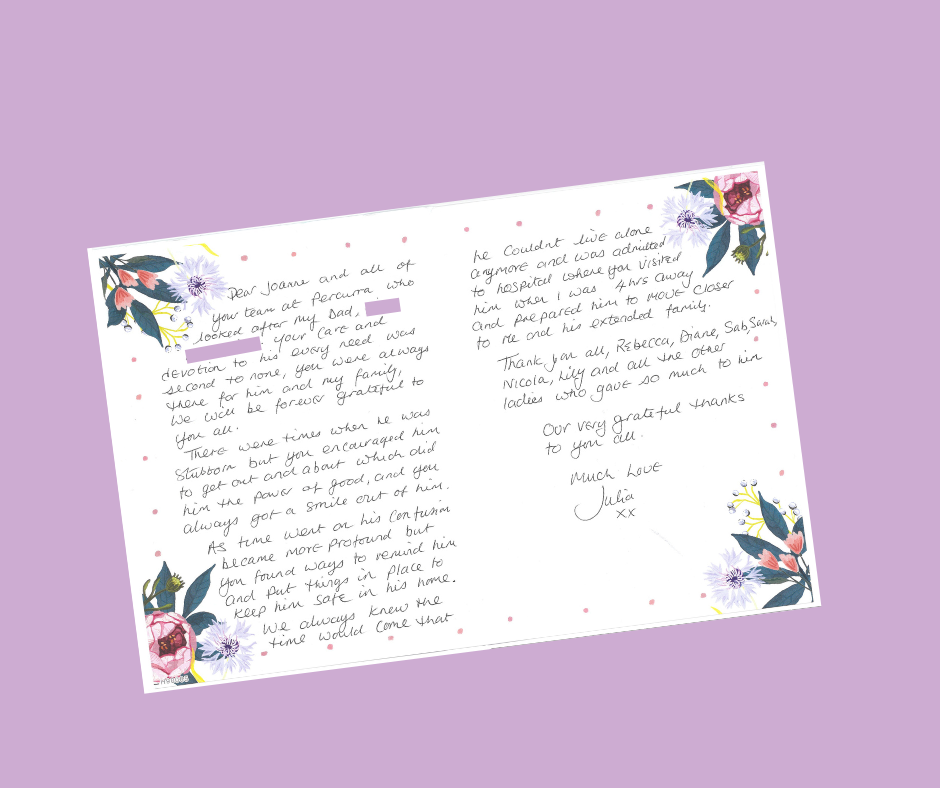 Dear Joanne and all of
your team at Percurra who
looked after my Dad,
your care and
devotion to his every need was
second to none, you were always
there for him and my family,
We will be forever grateful to
you all.
There were times when he was
Stubborn but you encouraged him
to get out and about which did
him the power of good, and you
always got a smile out of him.
As time went on his confusion
became more profound but
you found ways to remind him
and put things in place to
keep him safe in his home.
We always knew the
time would come that
he couldnt live alone
anymore and was admitted
to hospital where you visited
him when I was 4hrs away
and prepared him to move closer
to me and his extended family.
Thank you all, Rebecca, Diane, Sab, Sarah,
Nicola, Lily and all the other
ladies who gave so much to him
Our very grateful thanks
to you all.
Much Love
Julia
xx